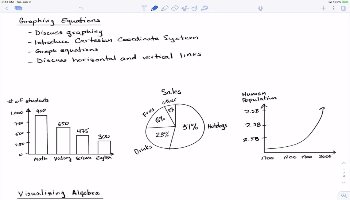 Graphing Equations
- Discuss graphing
- Introduce Cartesian Coordinate System
- Graph equations
- Discuss horizontal and vertical lines
# of students
1,000
750
500
250
0
900
650
475
300
Math
History
Science
English
Sales
Other
Fries
6%
23%
Drinks
57%
Hotdogs
Human
Population
1700
1900
2000
Visualizing Algebra